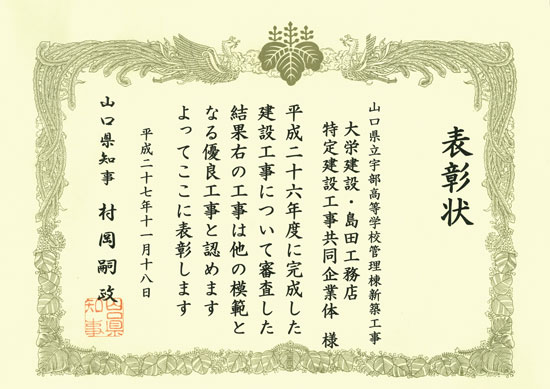 表彰状
山口県立宇部高等学校管理棟新築工事
大栄建設・島田工務店
特定建設工事共同企業体 様
平成二十六年度に完成した
建設工事について審査した
結果右の工事は他の模範と
なる優良工事と認めます
よってここに表彰します
平成二十七年十一月十八日
山口県知事 村岡嗣政
山口県
知事